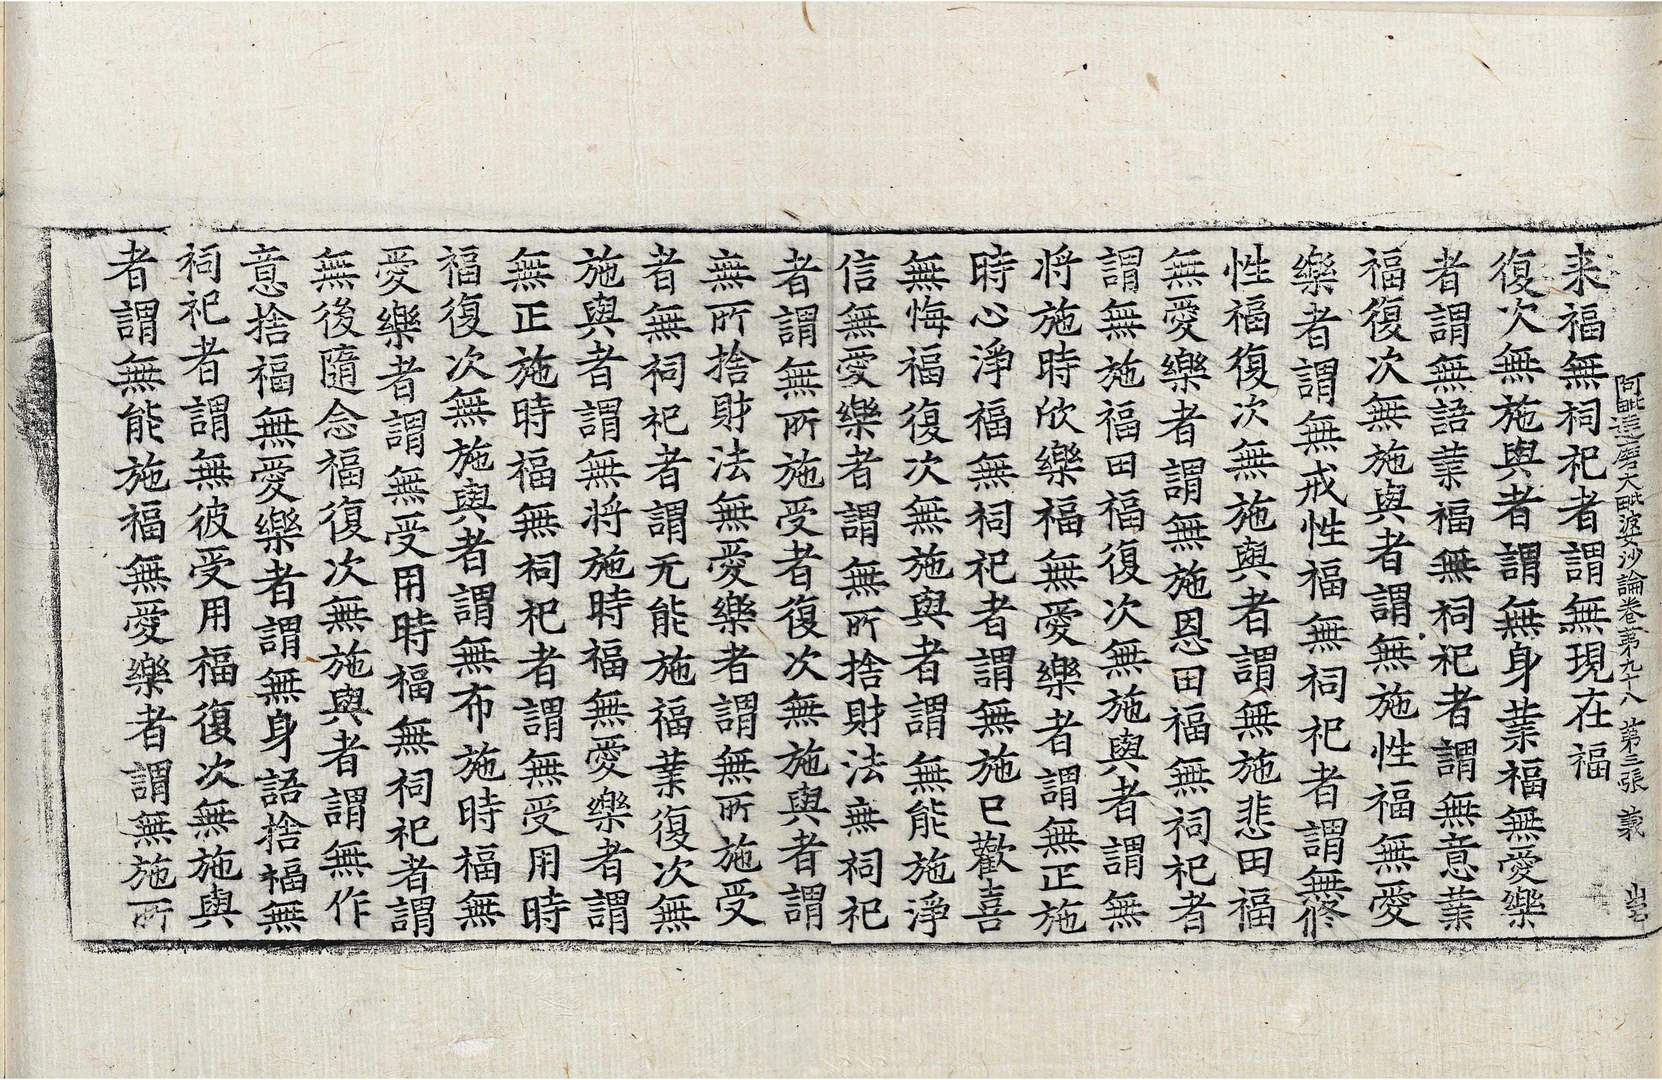 阿毗達磨大毗婆沙論卷第九十八 第三張 義
来福無祠祀者謂無現在福
復次無施與者謂無身業福無愛樂
者謂無語業福無祠祀者謂無意業
福復次無施與者謂無施性福無愛
樂者謂無戒性福無祠祀者謂無修
性福復次無施與者謂無施悲田福
無愛樂者謂無施恩田福無祠祀者
謂無施福田福復次無施與者謂無
将施時欣樂福無愛樂者謂無正施
時心淨福無祠祀者謂無施已歡喜
無悔福復次無施與者謂無能施淨
信無愛樂者謂無所捨財法無祠祀
者謂無所施受者復次無施與者謂
無所捨財法無愛樂者謂無所施受
者無祠祀者謂无能施福業復次無
施與者謂無将施時福無愛樂者謂
無正施時福無祠祀者謂無受用時
福復次無施與者謂無布施時福無
愛樂者謂無受用時福無祠祀者謂
無後隨念福復次無施與者謂無作
意捨福無愛樂者謂無身語捨福無
祠祀者謂無彼受用福復次無施與
者謂無能施福無愛樂者謂無施所